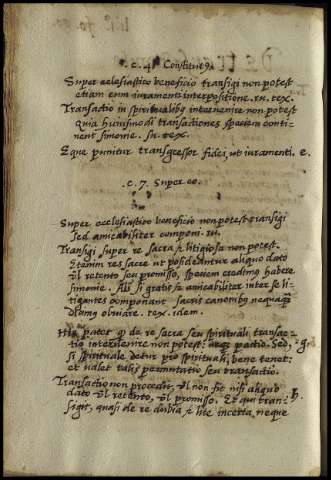 .c. 4. Constitut9.
Super ecclesiastico beneficio transigi non potest
etiam cum iuramenti interpositione. ru. tex.
Transactio in spiritualibq intervenire non potest
quia huiusmodi transactiones speciem conti-
nent simonie. in tex.
Eque punitur transgressor fidei, ut iuramenti. e.
.c. 7. Super eo.
Super ecclesiastico beneficio non potest transigi
sed amicabiliter componi. ru.
Transigi super re sacra et litigiosa non potest.
Etenim res sacre ut possideantur aliquo dato
vl retento seu promisso, speciem credimq habere
simonie. Abs si gratis et amicabiliter inter se li-
tigantes componant sacris canonibq nequaqz
obviare. tex. idem.
Hic patet qd de re sacra seu spirituali transac-
tio intervenire non potest: neqz pactio. Sed, g.
si spirituale detur pro spirituali, bene tenet:
et valet talis permutatio seu transactio.
Transactio non procedit, vl non fit nisi aliquo
dato vl retento, vl promisso. Et qui tran- h.
sigit, quasi de re dubia et lite incerta neque